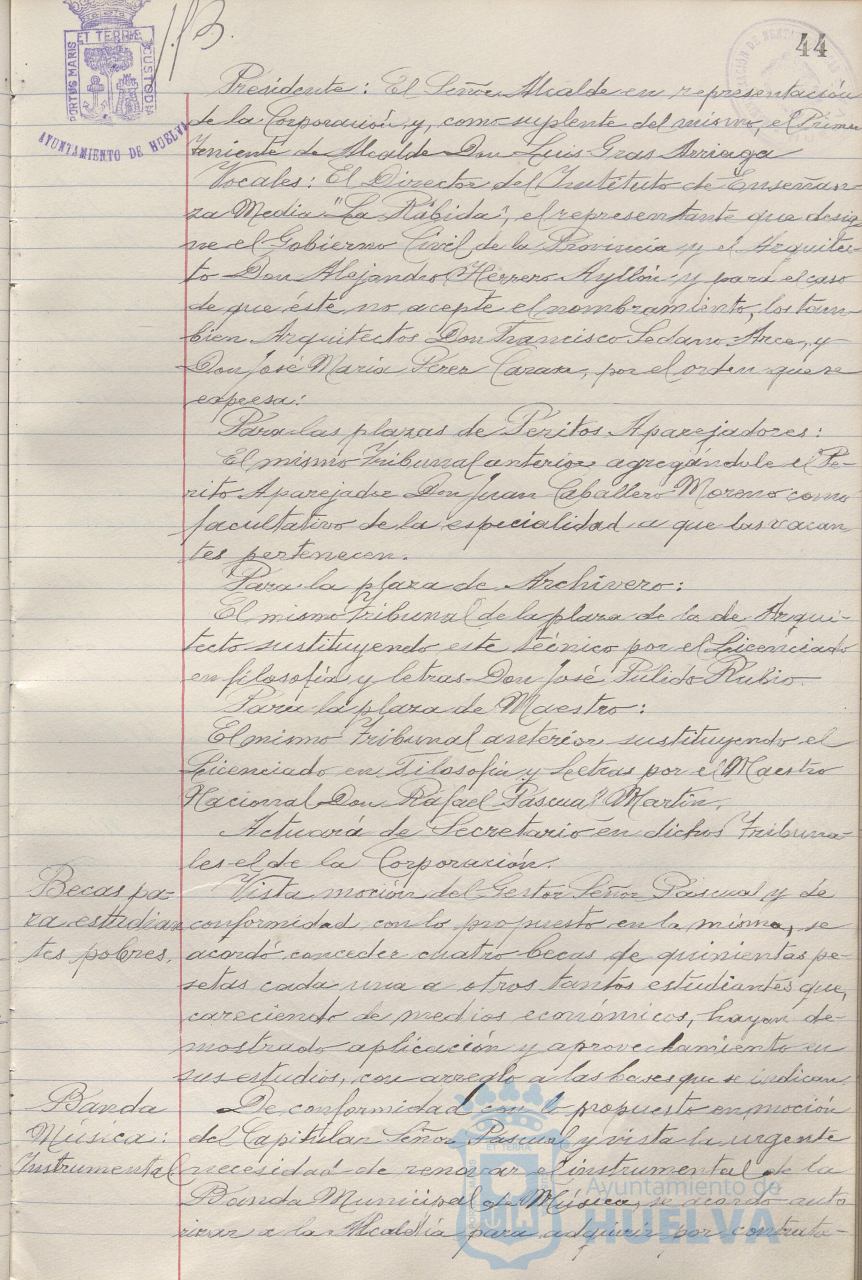 PORTUS MARIS ET TERRE CUSTODIA
AYUNTAMIENTO DE HUELVA
44
Presidente: El Señor Alcalde en representación
de la Corporación y, como suplente del mismo, el Primer
Teniente de Alcalde Don Luis Gras Arriaga
Vocales: El Director del Instituto de Enseñan-
za Media "La Rábida", el representante que desig-
ne el Gobierno Civil de la Provincia y el Arquitec-
to Don Alejandro Herrero Ayllón y para el caso
de que éste no acepte el nombramiento, los tam-
bien Arquitectos Don Francisco Sedano Arce, y
Don José María Pérez Carasa, por el orden que se
expresa:
Para las plazas de Peritos Aparejadores:
El mismo Tribunal anterior agregándole el Pe-
rito Aparejador Don Juan Caballero Moreno como
facultativo de la especialidad a que las vacan
tes pertenecen.
Para la plaza de Archivero:
El mismo tribunal de la plaza de la de Arqui-
tecto sustituyendo este técnico por el Licenciado
en filosofía y letras Don José Pulido Rubio
Para la plaza de Maestro:
El mismo Tribunal anterior sustituyendo el
Licenciado en Filosofía y Letras por el Maestro
Nacional Don Rafael Pascual Martín.
Actuará de Secretario en dichos Tribuna-
les el de la Corporación.
Becas pa-
ra estudian
tes pobres.
Vista moción del Gestor Señor Pascual y de
conformidad con lo propuesto en la misma, se
acordó conceder cuatro becas de quinientas pe-
setas cada una a otros tantos estudiantes que,
careciendo de medios económicos, hayan de-
mostrado aplicación y aprovechamiento en
sus estudios, con arreglo a las bases que se indican.
Banda
Música:
Instrumental
De conformidad con lo propuesto en moción
del Capitular Señor Pascual y vista la urgente
necesidad de renovar el instrumental de la
Banda Municipal de Música, se acordó auto
rizar a la Alcaldía para adquirir por contrato-
Ayuntamiento de
HUELVA